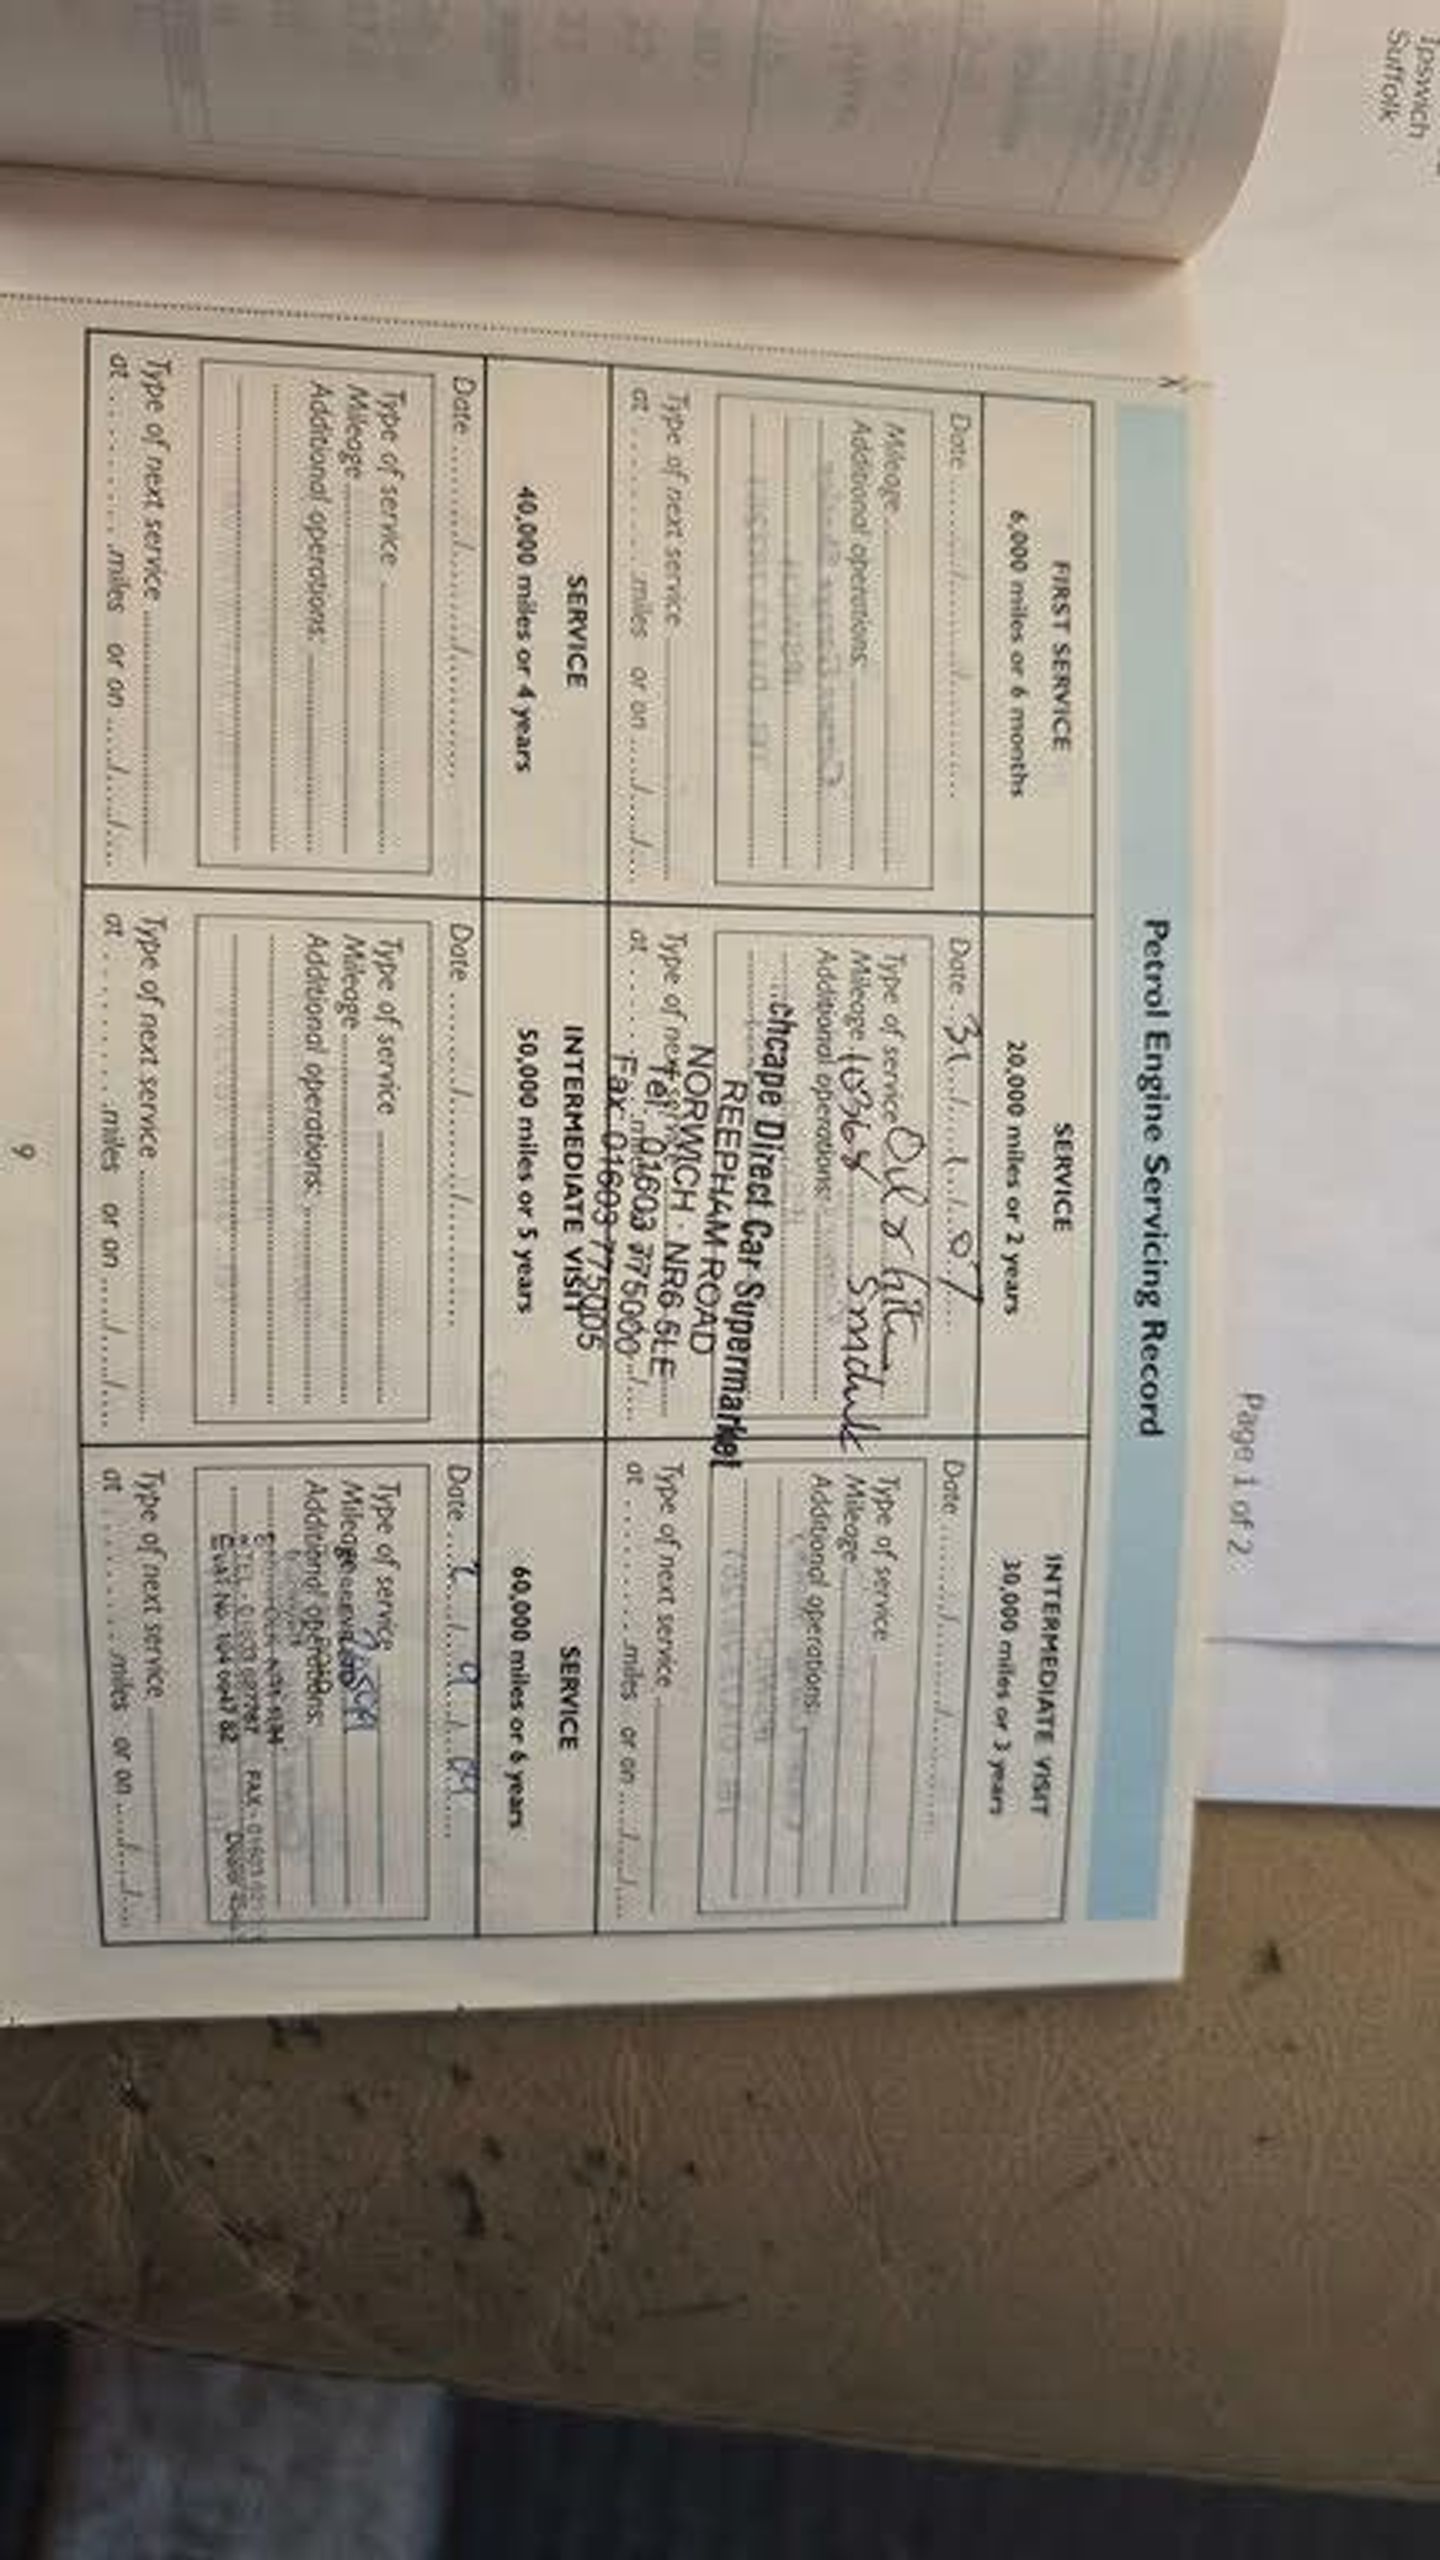 Ipswich
Suffolk
Page 1 of 2
Petrol Engine Servicing Record
FIRST SERVICE
6,000 miles or 6 months
Date ............/............/............
Mileage
Additional operations:
Type of next service
at ............ miles or on ....../....../......
SERVICE
20,000 miles or 2 years
Date 31 / 1 / 07
Type of service Oil & filter
Mileage 10368 5 module
Additional operations:
chcape Direct Car Supermarket
REEPHAM ROAD
NORWICH · NR6 5LE
Type of next service
Tel: 01603 775000
at ............ miles
Fax: 01603 775005
INTERMEDIATE VISIT
30,000 miles or 3 years
Date ............/............/............
Type of service
Mileage
Additional operations:
Type of next service
at ............ miles or on ....../....../......
SERVICE
40,000 miles or 4 years
Date ............/............/............
Type of service
Mileage
Additional operations:
Type of next service
at ............ miles or on ....../....../......
INTERMEDIATE VISIT
50,000 miles or 5 years
Date ............/............/............
Type of service
Mileage
Additional operations:
Type of next service
at ............ miles or on ....../....../......
SERVICE
60,000 miles or 6 years
Date / 9 / 09
Type of service
Mileage
Additional operations:
TEL - 01603
FAX - 01603
VAT No.
Type of next service
at ............ miles or on ....../....../......
9